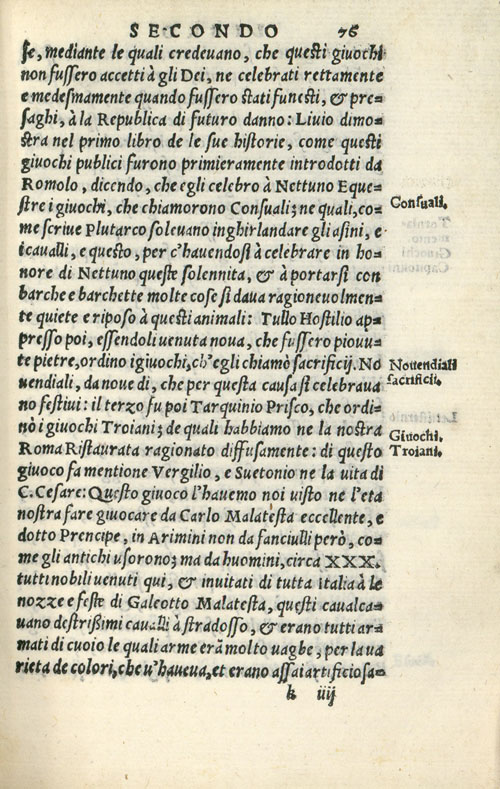 SECONDO 76
se, mediante le quali credeuano, che questi giuochi
non fussero accetti à gli Dei, ne celebrati rettamente
e medesmamente quando fussero stati funesti, & pre=
saghi, à la Republica di futuro danno: Liuio dimo=
stra nel primo libro de le sue historie, come questi
giuochi publici furono primieramente introdotti da
Romolo, dicendo, che egli celebro à Nettuno Eque=
stre i giuochi, che chiamorono Consuali; ne quali, co=
Consuali.
me scriue Plutarco soleuano inghirlandare gli asini, e
i caualli, e questo, per c'hauendosi à celebrare in ho=
nore di Nettuno queste solennita, & à portarsi con
barche e barchette molte cose si daua ragioneuolmen=
te quiete e riposo à questi animali: Tullo Hostilio ap=
presso poi, essendoli uenuta noua, che fussero piouu=
te pietre, ordino i giuochi, ch'egli chiamò sacrificij. No
Nouendiali
uendiali, da noue dì, che per questa causa si celebraua
sacrificii.
no festiui: il terzo fu poi Tarquinio Prisco, che ordi=
nò i giuochi Troiani; de quali habbiamo ne la nostra
Giuochi.
Roma Ristaurata ragionato diffusamente: di questo
Troiani.
giuoco fa mentione Vergilio, e Suetonio ne la uita di
C. Cesare: Questo giuoco l'hauemo noi uisto ne l'eta
nostra fare giuocare da Carlo Malatesta eccellente, e
dotto Prencipe, in Arimini non da fanciulli però, co=
me gli antichi usorono; ma da huomini, circa XXX.
tutti nobili uenuti qui, & inuitati di tutta italia à le
nozze e feste di Galeotto Malatesta, questi caualca=
uano destrißimi caualli à stradosso, & erano tutti ar=
mati di cuoio le quali arme erã molto uaghe, per la ua
rieta de colori, che u'haueua, et erano assai artificiosa=
k iiij